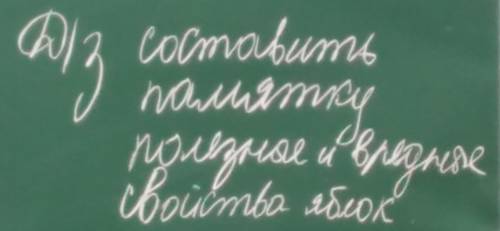 Д/з составить
памятку
полезные и вредные
свойства яблок